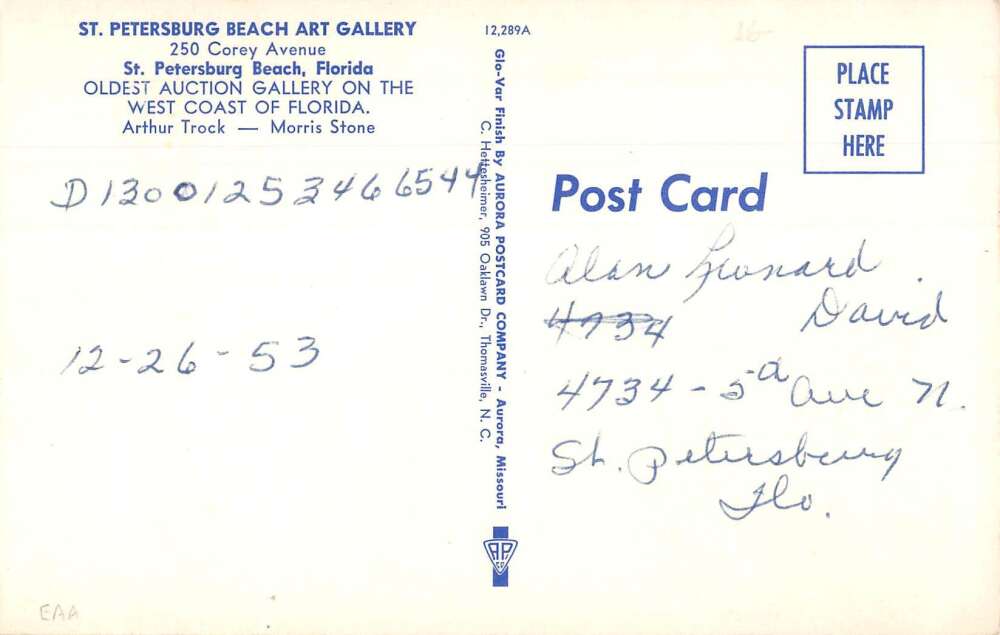 ST. PETERSBURG BEACH ART GALLERY
250 Corey Avenue
St. Petersburg Beach, Florida
OLDEST AUCTION GALLERY ON THE
WEST COAST OF FLORIDA.
Arthur Trock — Morris Stone
D1300125346 6544
12-26-53
EAA
12,289A
Glo-Var Finish By AURORA POSTCARD COMPANY - Aurora, Missouri
C. Hettesheimer, 905 Oaklawn Dr., Thomasville, N. C.
APCO
16-
PLACE
STAMP
HERE
Post Card
Alan Leonard
David
4734
4734 - 5a Ave N.
St. Petersburg
Flo.